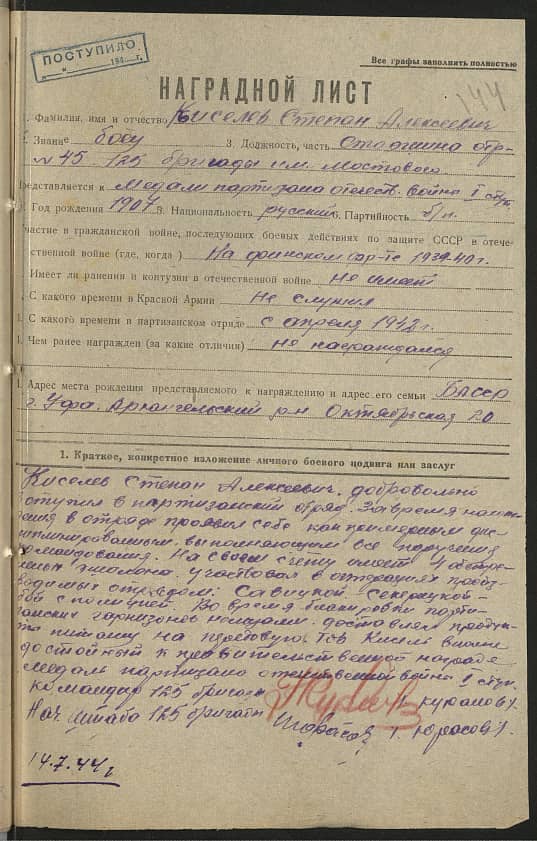 ПОСТУПИЛО
194 г.
Все графы заполнять полностью
144
НАГРАДНОЙ ЛИСТ
1. Фамилия, имя и отчество Киселев Степан Алексеевич
2. Звание боец 3. Должность, часть Старшина отр-
№ 45 125 бригады им. Мостового
Представляется к Медали партизана отечеств. война I ступ.
Год рождения 1907 Национальность русский Партийность б/п.
Участие в гражданской войне, последующих боевых действиях по защите СССР в отече-
ственной войне (где, когда) На финском 1939-40г.
Имеет ли ранения и контузии в отечественной войне не имеет
С какого времени в Красной Армии Не служил
С какого времени в партизанском отряде с апреля 1942 г.
Чем ранее награжден (за какие отличия) не награждался
Адрес места рождения представляемого к награждению и адрес его семьи БАССР
г. Уфа. Архангельский р-н Октябрьская 20
1. Краткое, конкретное изложение личного боевого подвига или заслуг
Киселев Степан Алексеевич. добровольно
вступил в партизанский отряд. За время нахож-
дения в отряде проявил себе как примерным дис-
циплинированным. выполняющим все поручения
командования. На своем счету имеет 4
эшелона. участвовал в операциях произ-
водимых отрядом:
с полицией. Во время блокировки парти-
занских гарнизонов немцами. доставлял продук-
ты питания на передовую. Тов Кисель вполне
достойный к правительственной награде
Медаль партизана отечественной война I ступ.
командир 125 бригады
Нач штаба 125 бригады
14.7.44 г